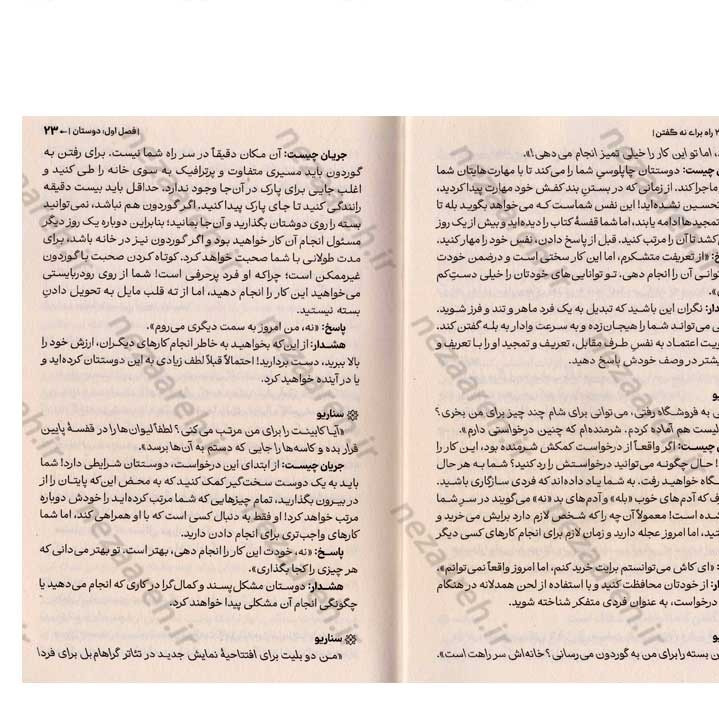 ۲ راه برای نه گفتن |
، اما تو این کار را خیلی تمیز انجام می‌دهی!».
چیست: دوستتان چاپلوسیِ شما را می‌کند تا با مهارت‌هایتان شما
ماجرا کند. از زمانی که در بستنِ بند کفش خود مهارت پیدا کردید،
تحسین نشده‌اید! این نفس شماست که می‌خواهد بگوید بله تا
تمجیدها ادامه یابند، اما شما قفسهٔ کتاب را دیده‌اید و بیش از یک روز
کشد تا آن را مرتب کنید. قبل از پاسخ دادن، نفسِ خود را مهار کنید.
«از تعریفت متشکرم، اما این کار سختی است و در ضمن خودت
توانی آن را انجام دهی. تو توانایی‌های خودتان را خیلی دستِ‌کم
».
نگران این باشید که تبدیل به یک فرد ماهر و تند و فرز شوید.
می‌تواند شما را هیجان‌زده و به سرعت وادار به بله گفتن کند.
اعتماد به نفسِ طرف مقابل، تعریف و تمجید او را با تعریف و
بیشتر در وصف خودش پاسخ دهید.
به فروشگاه رفتی، می‌توانی برای شام چند چیز برای من بخری؟
لیست هم آماده کردم. شرمنده‌ام که چنین درخواستی دارم».
چیست: اگر واقعاً از درخواست کمکش شرمنده بود، این کار را
! حال چگونه می‌توانید درخواستش را رد کنید؟ شما به هر حال
خواهید رفت. به شما یاد داده‌اند که فردی سازگاری باشید.
که آدم‌های خوب «بله» و آدم‌های بد «نه» می‌گویند در سرِ شما
شده است! معمولاً آن چه را که شخص لازم دارد برایش می‌خرید و
، اما امروز عجله دارید و زمان لازم برای انجام کارهای کسی دیگر
«ای کاش می‌توانستم برایت خرید کنم، اما امروز واقعاً نمی‌توانم».
از خودتان محافظت کنید و با استفاده از لحن همدلانه در هنگام
درخواست، به عنوان فردی متفکر شناخته شوید.
بسته را برای من به گوردون می‌رسانی؟ خانه‌اش سر راهت است».
| فصل اول: دوستان | ← ۲۳
جریان چیست: آن مکان دقیقاً در سر راه شما نیست. برای رفتن به
گوردون باید مسیری متفاوت و پرترافیک به سوی خانه را طی کنید و
اغلب جایی برای پارک در آن‌جا وجود ندارد. حداقل باید بیست دقیقه
رانندگی کنید تا جای پارک پیدا کنید. اگر گوردون هم نباشد، نمی‌توانید
بسته را روی دوشتان بگذارید و آن‌جا بمانید؛ بنابراین دوباره یک روز دیگر
مسئول انجام آن کار خواهید بود و اگر گوردون نیز در خانه باشد، برای
مدت طولانی با شما صحبت خواهد کرد. کوتاه کردن صحبت با گوردون
غیرممکن است؛ چراکه او فرد پرحرفی است! شما از روی رودربایستی
می‌خواهید این کار را انجام دهید، اما از ته قلب مایل به تحویل دادنِ
بسته نیستید.
پاسخ: «نه، من امروز به سمت دیگری می‌روم».
هشدار: از این‌که بخواهید به خاطر انجام کارهای دیگران، ارزش خود را
بالا ببرید، دست بردارید! احتمالاً قبلاً لطف زیادی به این دوستتان کرده‌اید و
یا در آینده خواهید کرد.
سناریو
«آیا کابینت را برای من مرتب می‌کنی؟ لطفاً لیوان‌ها را در قفسهٔ پایین
قرار بده و کاسه‌ها را جایی که دستم به آن‌ها برسد».
جریان چیست: از ابتدای این درخواست، دوستتان شرایطی دارد! شما
باید به یک دوست سخت‌گیر کمک کنید که به محض این‌که پایتان را از
در بیرون بگذارید، تمام چیزهایی که شما مرتب کرده‌اید را خودش دوباره
مرتب خواهد کرد! او فقط به دنبال کسی است که با او همراهی کند، اما شما
کارهای واجب‌تری برای انجام دادن دارید.
پاسخ: «نه، خودت این کار را انجام دهی، بهتر است. تو بهتر می‌دانی که
هر چیزی را کجا بگذاری».
هشدار: دوستان مشکل‌پسند و کمال‌گرا در کاری که انجام می‌دهید یا
چگونگی انجام آن مشکلی پیدا خواهند کرد.
سناریو
«من دو بلیت برای افتتاحیهٔ نمایش جدید در تئاتر گراهام‌بل برای فردا
nezaareh.ir